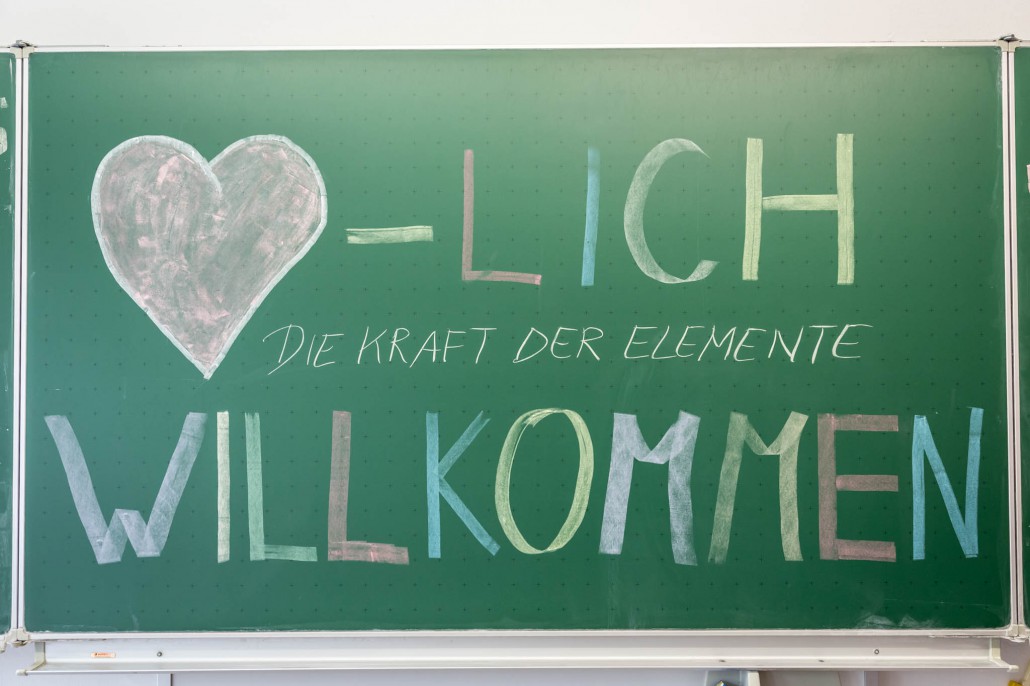 -LICH
DIE KRAFT DER ELEMENTE
WILLKOMMEN